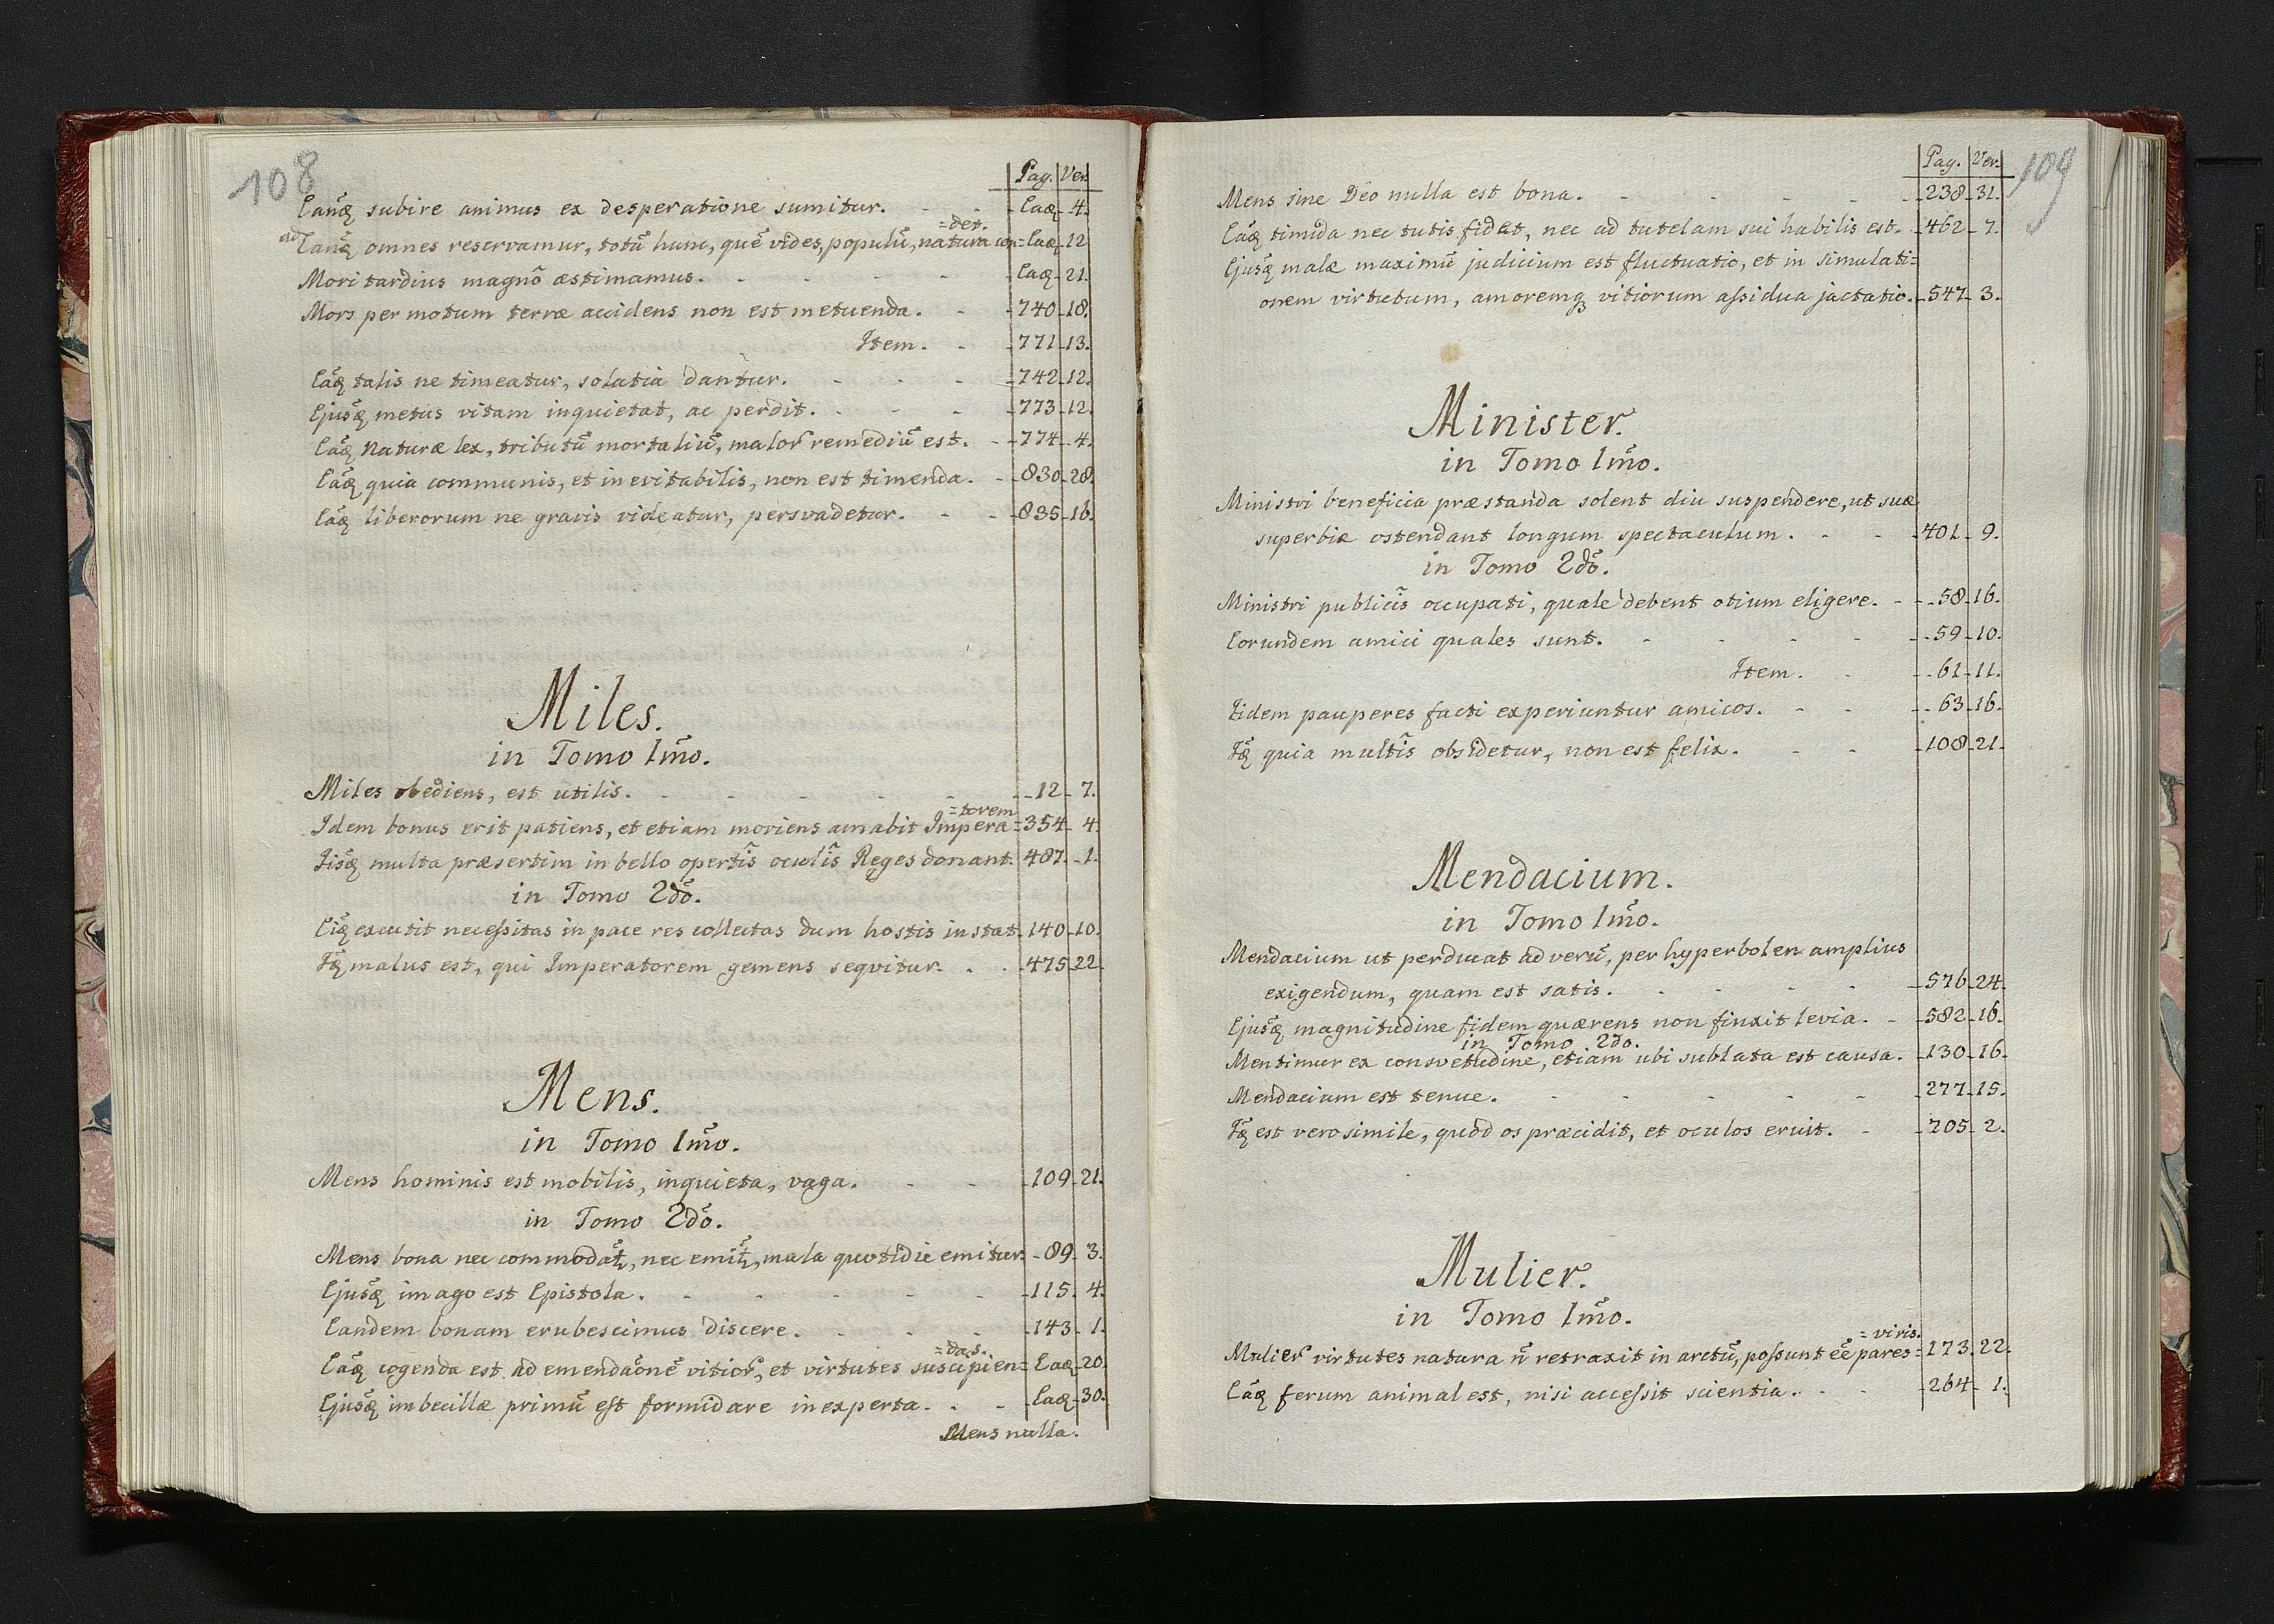 108
Pag. Ver.
Eanq̃ subire animus ex desperatione sumitur. - - Eaq. 4.
=det.
ad Eanq̃ omnes reservamur, totũ hunc, quẽ vides, populũ, natura con= Eaq. 12
Mori tardius magnõ æstimamus. - - - - Eaq. 21.
Mors per motum terræ accidens non est metuenda. - 740. 18.
Item. - 771. 13.
Eãq talis ne timeatur, solatia dantur. - - - 742. 12.
Ejusq̃ metus vitam inquietat, ac perdit. - - - 773. 12.
Eãq Naturæ lex, tributũ mortaliũ, malor remediũ est. - 774. 4.
Eãq quia communis, et inevitabilis, non est timenda. - 830. 28.
Eãq liberorum ne gravis videatur, persvadetur. - - 835. 16.
Miles.
in Tomo 1mõ.
Miles obediens, est utilis. - - - - - 12. 7.
=torem
Idem bonus erit patiens, et etiam moriens amabit Impera= 354. 4.
Iisq̃ multa præsertim in bello opertis̃ oculis̃ Reges donant. 487. 1.
in Tomo 2dõ.
Eiq̃ excutit necessitas in pace res collectas dum hostis instat. 140. 10.
Iq̃ malus est, qui Imperatorem gemens seqvitur. - - 475. 22.
Mens.
in Tomo 1mõ.
Mens hominis est mobilis, inquieta, vaga. - - 109. 21.
in Tomo 2dõ.
Mens bona nec commodat̃, nec emit̃, mala quotidie emitur. 89. 3.
Ejusq̃ imago est Epistola. - - - - - 115. 4.
Eandem bonam erubescimus discere. - - - 143. 1.
=das.
Eãq cogenda est ad emendaõnẽ vitior, et virtutes suscipien= Eaq. 20.
Ejusq̃ imbecillæ primũ est formidare inexperta. - - Eaq. 30.
Mens nulla.
109
Pag. Ver.
Mens sine Deo nulla est bona. - - - - - 238. 31.
Eãq timida nec tutis fidet, nec ad tutelam sui habilis est. 462. 7.
Ejusq̃ malæ maximũ judicium est fluctuatio, et in simulati=
onem virtutum, amoremq vitiorum assidua jactatio. 547. 3.
Minister.
in Tomo 1mõ.
Ministri beneficia præstanda solent diu suspendere, ut suæ
superbiæ ostendant longum spectaculum. - - 401. 9.
in Tomo 2dõ.
Ministri publicis̃ occupati, quale debent otium eligere. - 58. 16.
Eorundem amici quales sunt. - - - - 59. 10.
Item. - 61. 11.
Iidem pauperes facti experiuntur amicos. - - 63. 16.
Iq̃ quia multis̃ obsidetur, non est felix. - - 108. 21.
Mendacium.
in Tomo 1mõ.
Mendacium ut perducat ad verũ, per hyperbolen amplius
exigendum, quam est satis. - - - - 576. 24.
Ejusq̃ magnitudine fidem quærens non finxit levia. - 582. 16.
in Tomo 2do.
Mentimur ex consvetudine, etiam ubi sublata est causa. 130. 16.
Mendacium est tenue. - - - - - 277. 15.
Iq̃ est verosimile, quod os præcidit, et oculos eruit. - 705. 2.
Mulier.
in Tomo 1mõ.
=viris.
Mulier virtutes natura ñ retraxit in arctũ, possunt eẽ pares= 173. 22.
Eãq ferum animal est, nisi accessit scientia. - - 264. 1.